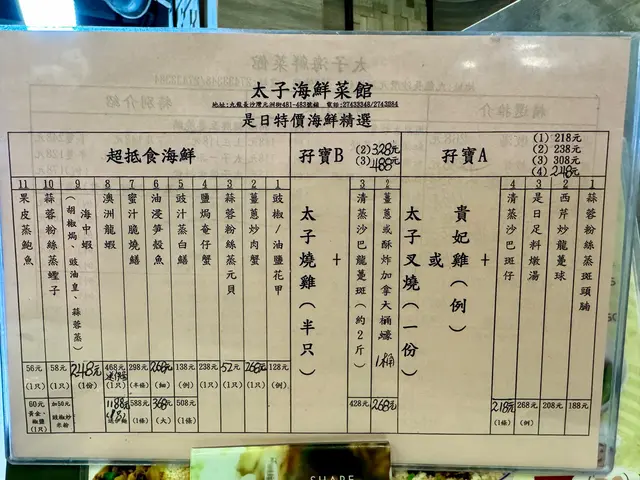 太子海鮮菜館
地址:九龍長沙灣元洲街481-483號舖 電話:27433348/2743984
是日特價海鮮精選
孖寶A
(1) 218元
(2) 238元
(3) 308元
(4) 248元
1 蒜蓉粉絲蒸斑頭腩 188元
2 西芹炒龍躉球 208元
3 是日足料燉湯 268元 (例)
4 清蒸沙巴斑仔 218元 (1條)
+
貴妃雞(例)
或
太子叉燒(一份)
孖寶B
(2) 328元
(3) 488元
2 薑蔥或酥炸加拿大桶蠔 1桶 268元
3 清蒸沙巴龍躉斑(約2斤) 428元
+
太子燒雞(半只)
超抵食海鮮
1 豉椒/油鹽花甲 128元 (例)
2 薑蔥炒肉蟹 268元 (1只)
3 蒜蓉粉絲蒸元貝 52元 (1只)
4 鹽焗奄仔蟹 238元 (1只)
5 豉汁蒸白鱔 138元 (例) 508元 (1條)
6 油浸笋殼魚 268元 (細) 368元 (大)
7 蜜汁脆燒鱔 298元 (半條) 588元 (1條)
8 澳洲龍蝦 468元 1188元
9 海中蝦
(胡椒焗、豉油皇、蒜蓉蒸)
248元 (1份)
10 蒜蓉粉絲蒸蟶子 58元 (1只) 加50元 豉椒炒米粉
11 果皮蒸鮑魚 56元 (1只) 60元 黃金、椒鹽 (1只)
SHARE